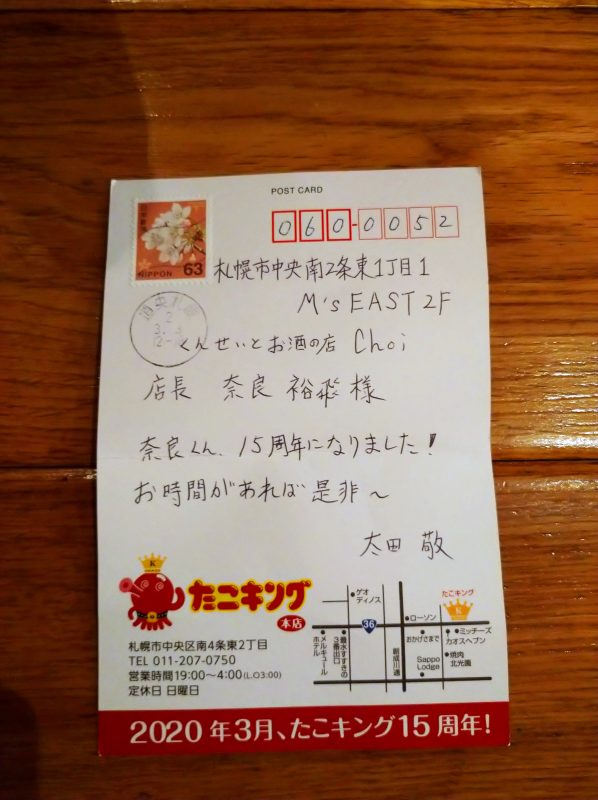 POST CARD
日本郵便
NIPPON 63
060-0052
札幌市中央南2条東1丁目1
M's EAST 2F
道央札幌
2
くんせいとお酒の店 Choi
店長 奈良 裕飛 様
奈良くん、15周年になりました！
お時間があれば是非〜
太田 敬
K
たこキング
本店
札幌市中央区南4条東2丁目
TEL 011-207-0750
営業時間19:00〜4:00(L.O3:00)
定休日 日曜日
ゲオ
ディノス
メルキュール
ホテル
豊水すすきの
3番出口
36
創成川通
ローソン
おかげさまで
Sappo
Lodge
たこキング
K
ミッチーズ
カオスヘブン
焼肉
北光園
2020年3月、たこキング15周年!